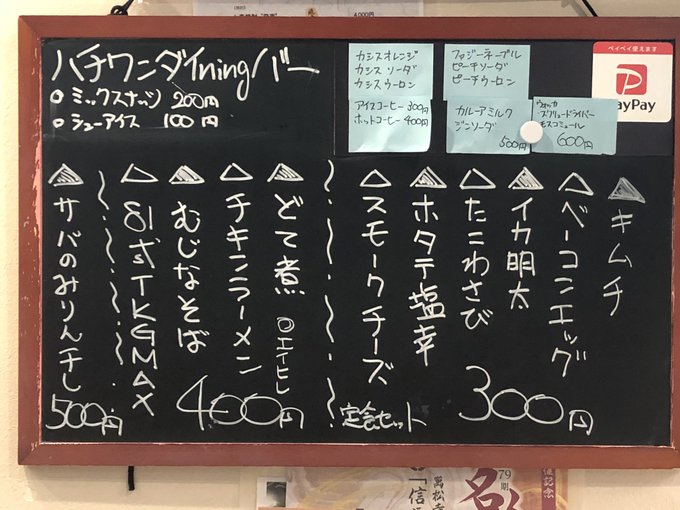 4,000円
ハチワンダイningバー
ミックスナッツ 200円
シューアイス 100円
カシスオレンジ
カシスソーダ
カシスウーロン
アイスコーヒー 300円
ホットコーヒー 400円
ファジーネーブル
ピーチソーダ
ピーチウーロン
カルーアミルク
ジンソーダ
500円
ウォッカ
スクリュードライバー
モスコミュール
600円
ペイペイ使えます
PayPay
キムチ
ベーコンエッグ
イカ明太
たこわさび
ホタテ塩幸
スモークチーズ
300円
定食セット
どて煮
エイヒレ
チキンラーメン
むじなそば
81式TKGMAX
400円
サバのみりん干し
500円
79期
名
萬松寺
「信
催記念